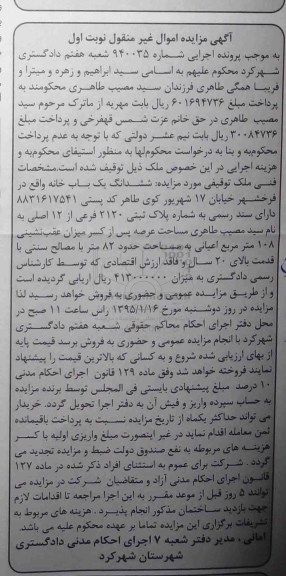 آگهی مزایده اموال غیر منقول نوبت اول
به موجب پرونده اجرایی شماره ۹۴۰۰۳۵ شعبه هفتم دادگستری
شهرکرد محکوم علیهم به اسامی سید ابراهیم و زهره و میترا و
فریبا همگی طاهری فرزندان سید مصیب طاهری محکومند به
پرداخت مبلغ ۶۰۱۶۹۴۷۳۶ ریال بابت مهریه از ماترک مرحوم سید
مصیب طاهری در حق خانم عزت شمس قهفرخی و پرداخت مبلغ
۳۰۰۸۴۷۳۶ ریال بابت نیم عشر دولتی که با توجه به عدم پرداخت
محکوم‌به و بنا به درخواست محکوم‌لها به منظور استیفای محکوم‌به و
هزینه اجرایی در این خصوص ملک ذیل توقیف شده است.مشخصات
فنی ملک توقیفی مورد مزایده: ششدانگ یک باب خانه واقع در
فرخشهر خیابان ۱۷ شهریور کوی طاهر کد پستی ۸۸۳۱۶۱۷۵۴۱
دارای سند رسمی به شماره پلاک ثبتی ۲۱۲۰ فرعی از ۱۲ اصلی به
نام سید مصیب طاهری مساحت عرصه پس از کسر میزان عقب‌نشینی
۱۰۸ متر مربع اعیانی به مساحت حدود ۸۲ متر با مصالح سنتی با
قدمت بالای ۲۰ سال و فاقد ارزش اقتصادی که توسط کارشناس
رسمی دادگستری به میزان ۴۱۳۰۰۰۰۰۰ ریال ارزیابی گردیده است
و از طریق مزایده عمومی و حضوری به فروش خواهد رسید لذا
مزایده در روز دوشنبه مورخ ۱۳۹۵/۱/۱۶ راس ساعت ۱۱ صبح در
محل دفتر اجرای احکام محاکم حقوقی شعبه هفتم دادگستری
شهرکرد با انجام مزایده عمومی و حضوری به فروش برسد قیمت پایه
از بهای ارزیابی شده شروع و به کسانی که بالاترین قیمت را پیشنهاد
نمایند فروخته خواهد شد وفق ماده ۱۲۹ قانون اجرای احکام مدنی
۱۰ درصد مبلغ پیشنهادی بایستی فی المجلس توسط برنده مزایده
به حساب سپرده واریز و فیش آن به دفتر اجرا تحویل گردد. خریدار
می تواند حداکثر یکماه از تاریخ مزایده نسبت به پرداخت باقیمانده
ثمن معامله اقدام نماید در غیر اینصورت مبلغ واریزی اولیه با کسر
هزینه های مربوطه به نفع صندوق دولت ضبط و مزایده تجدید می
گردد . شرکت برای عموم به استثنای افراد ذکر شده در ماده ۱۲۷
قانون اجرای احکام مدنی آزاد و متقاضیان شرکت در مزایده می
توانند ۵ روز قبل از موعد مقرر به این اجرا مراجعه تا اقدامات لازم
جهت بازدید ساختمان مذکور انجام پذیرد . هزینه های مربوط به
تشریفات برگزاری این مزایده تماما بر عهده محکوم علیه می باشد.
امانی ، مدیر دفتر شعبه ۷ اجرای احکام مدنی دادگستری
شهرستان شهرکرد